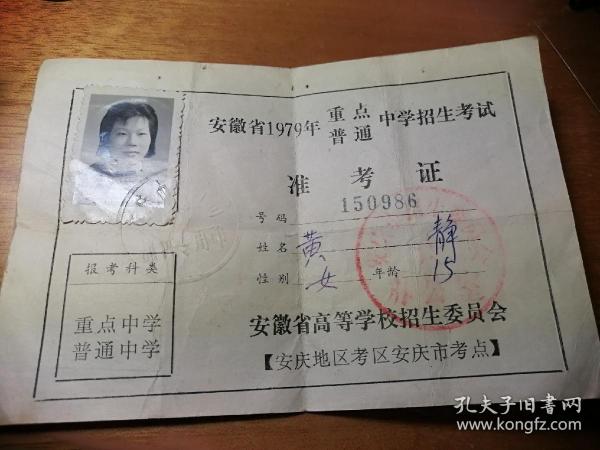 安徽省1979年 重点 普通 中学招生考试
准考证
号码 150986
姓名 黄静
性别 女 年龄 15
报考科类
重点中学
普通中学
安徽省高等学校招生委员会
【安庆地区考区安庆市考点】
孔夫子旧书网
www.kongfz.com